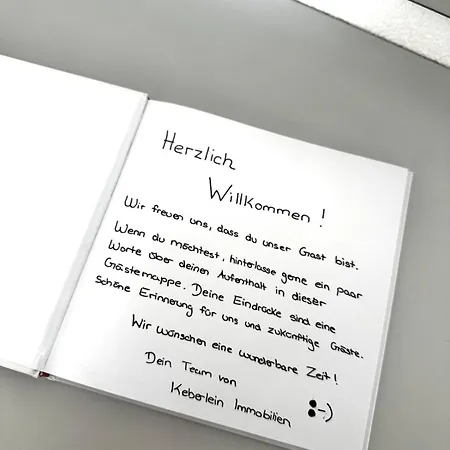 Herzlich
Willkommen!
Wir freuen uns, dass du unser Gast bist.
Wenn du möchtest, hinterlasse gerne ein paar
Worte über deinen Aufenthalt in dieser
Gästemappe. Deine Eindrücke sind eine
schöne Erinnerung für uns und zukünftige Gäste.
Wir wünschen eine wunderbare Zeit!
Dein Team von
Keberlein Immobilien :-)